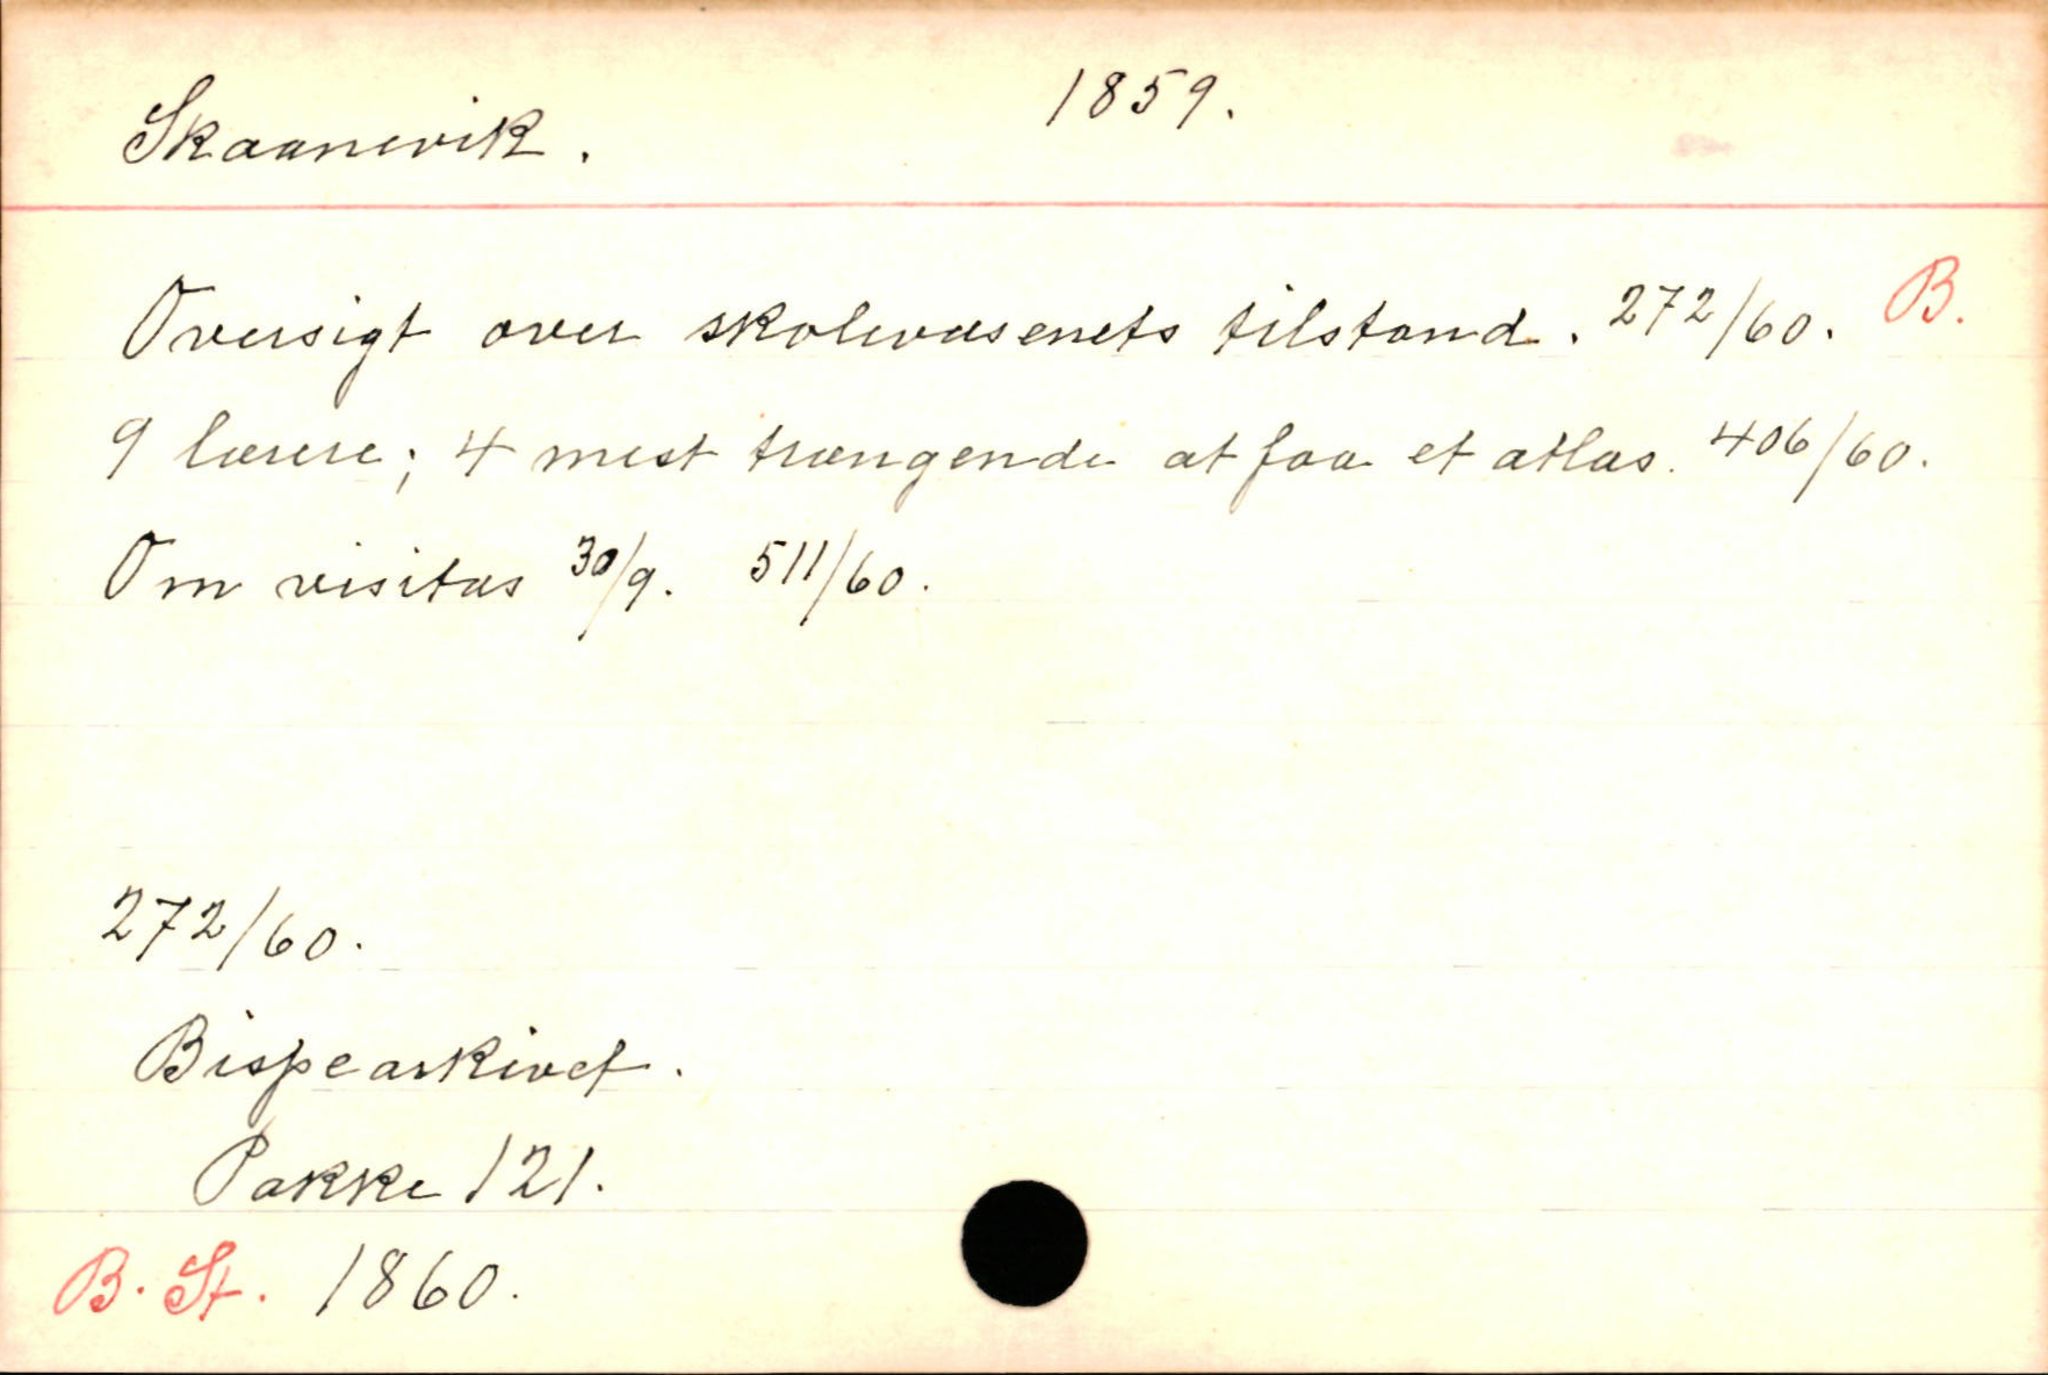 Skaanevik. 1859.
Oversigt over skolevæsenets tilstand. 272/60. B.
9 lærere; 4 mest trængende at faa et atlas. 406/60.
Om visitas 30/9. 511/60.
272/60.
Bispearkivet.
Pakke 121.
B. St. 1860.